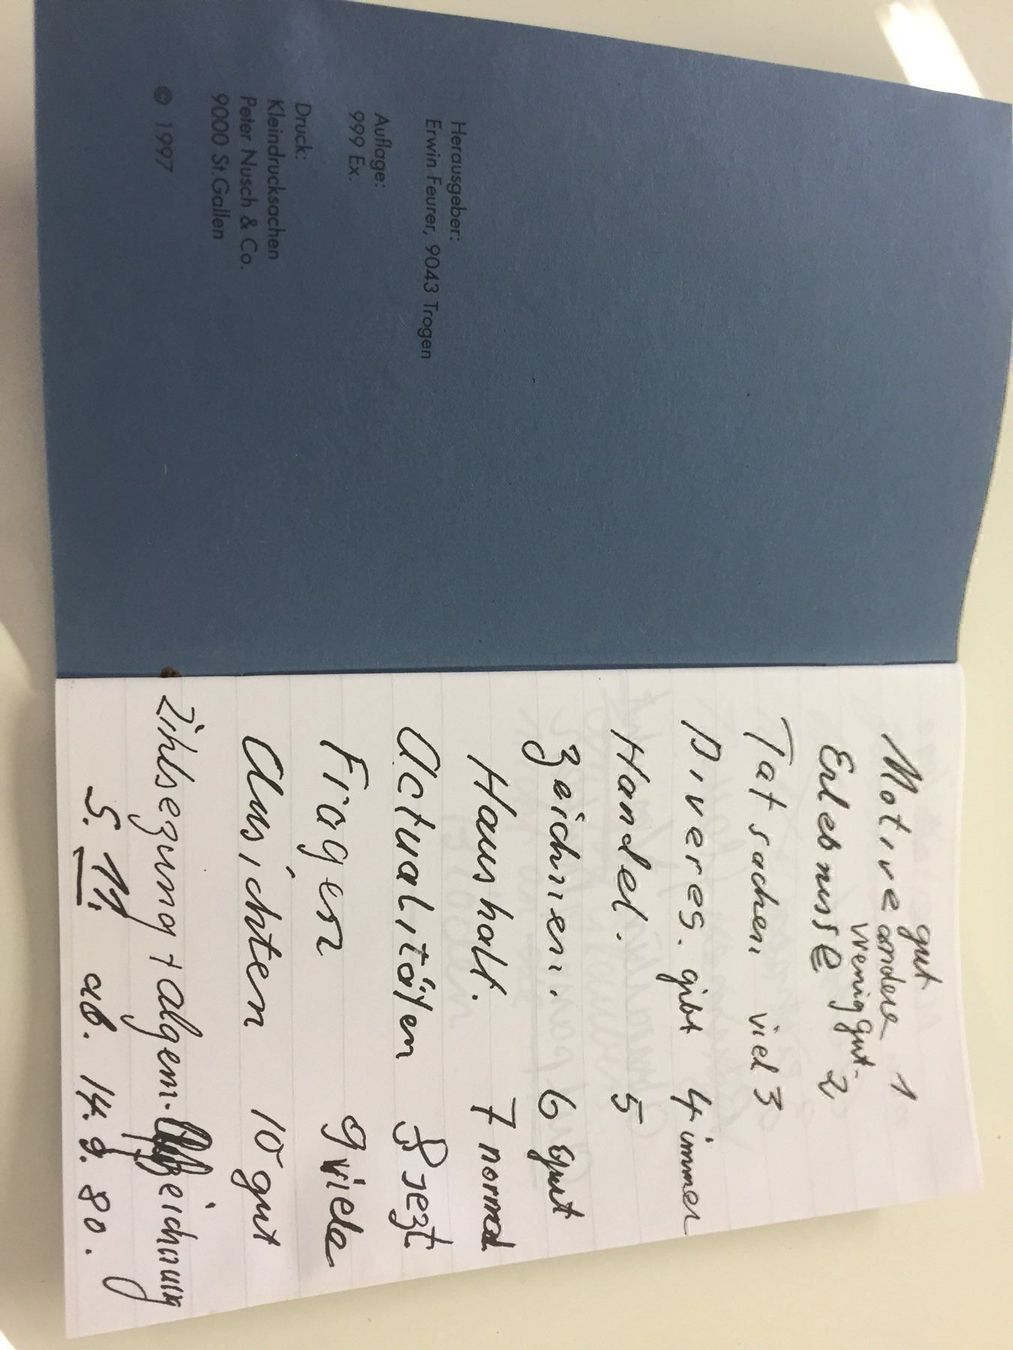 Herausgeber:
Erwin Feurer, 9043 Trogen
Auflage:
999 Ex.
Druck:
Kleindrucksachen
Peter Nusch & Co.
9000 St.Gallen
© 1997
gut
Motive andere 1
wenig gut-
Erlebnisse 2
Tatsachen viel 3
Diveres. gibt 4 immer
Handel. 5
Zeichnen. 6 gut
Haushalt. 7 normal
Actualitäten 8 jezt
Fragen 9 viele
Ansichten 10 gut
Zihlsezung + algem.
5. 11. ab. 14. 9. 80.